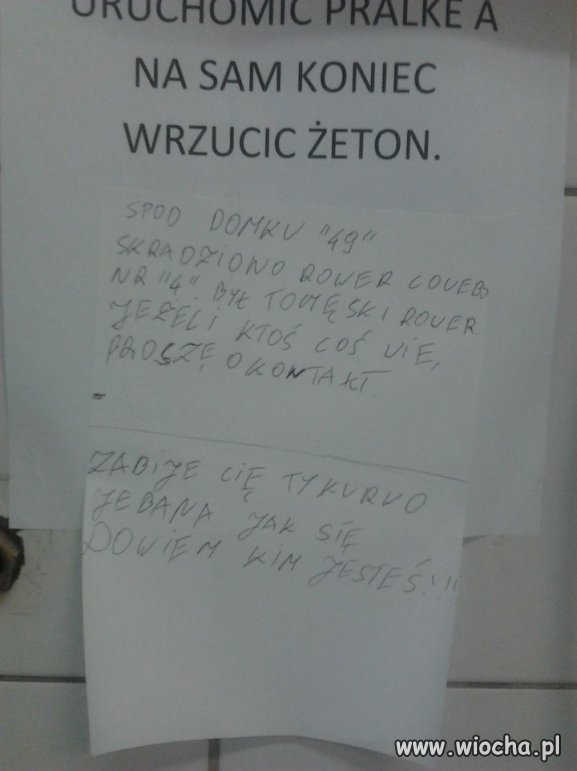 URUCHOMIC PRALKE A
NA SAM KONIEC
WRZUCIC ŻETON.
SPOD DOMKU "49"
SKRADZIONO ROWER COUEBO
NR "4" BYŁ TO MĘSKI ROWER
JEŻELI KTOŚ COŚ WIE,
PROSZĘ O KONTAKT.
ZABIJE CIĘ TY KURWO
JEBANA JAK SIĘ
DOWIEM KIM JESTEŚ!!!
www.wiocha.pl